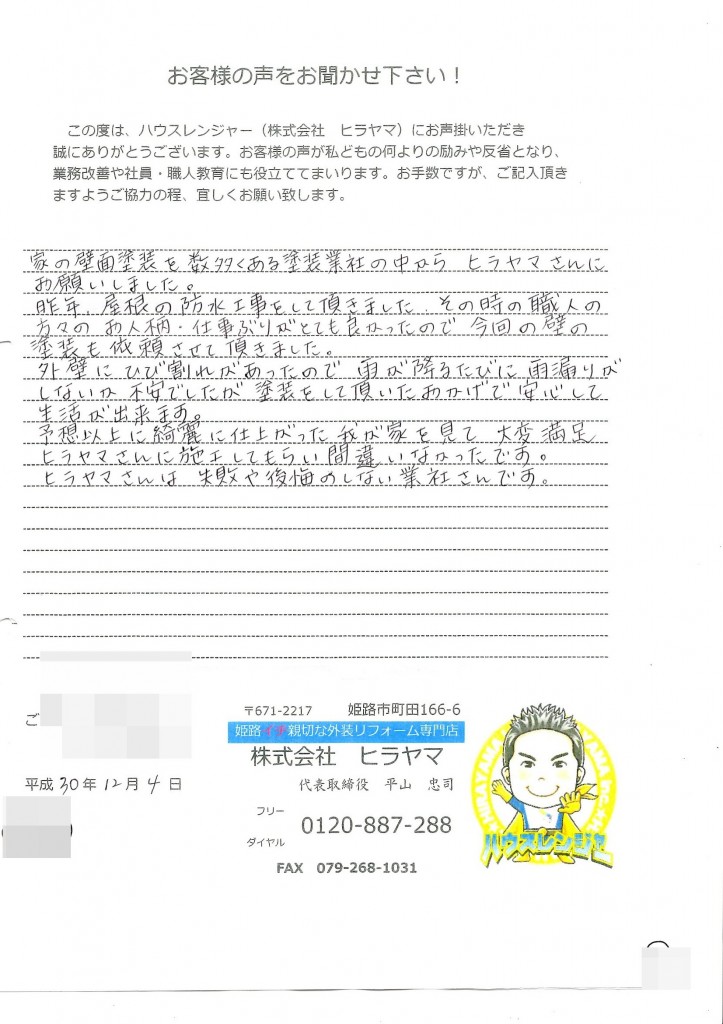 お客様の声をお聞かせ下さい！
この度は、ハウスレンジャー（株式会社　ヒラヤマ）にお声掛いただき
誠にありがとうございます。お客様の声が私どもの何よりの励みや反省となり、
業務改善や社員・職人教育にも役立ててまいります。お手数ですが、ご記入頂き
ますようご協力の程、宜しくお願い致します。
家の壁面塗装を数多くある塗装業社の中から ヒラヤマさんに
お願いしました。
昨年、屋根の防水工事をして頂きました。その時の職人の
方々の お人柄・仕事ぶりがとても良かったので 今回の壁の
塗装も依頼させて頂きました。
外壁に ひび割れがあったので 雨が降るたびに 雨漏りが
しないか 不安でしたが 塗装をして頂いたおかげで 安心して
生活が出来ます。
予想以上に綺麗に仕上がった 我が家を見て 大変満足
ヒラヤマさんに施工してもらい間違いなかったです。
ヒラヤマさんは 失敗や後悔のしない業社さんです。
ご
平成 30年 12月 4 日
〒671-2217　姫路市町田166-6
姫路イチ親切な外装リフォーム専門店
株式会社　ヒラヤマ
代表取締役　平山　忠司
フリー
ダイヤル
0120-887-288
FAX　079-268-1031
ハウスレンジャー